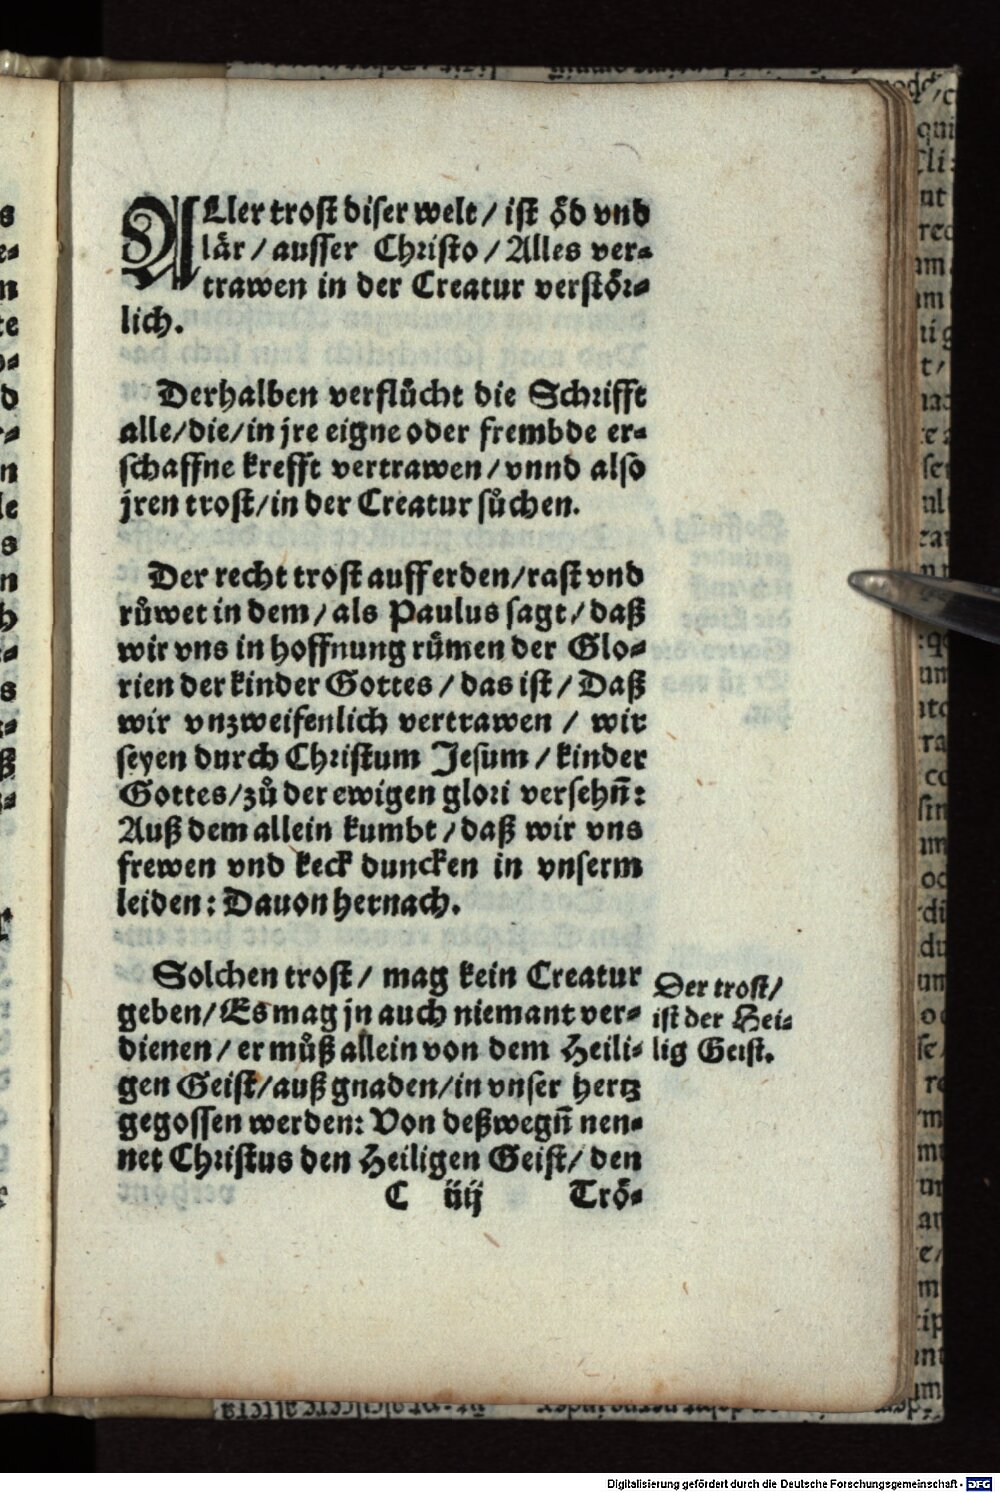 ALler trost diser welt / ist oͤd vnd
laͤr / ausser Christo / Alles ver⸗
trawen in der Creatur verstoͤr⸗
lich.
Derhalben verfluͤcht die Schrifft
alle / die / in jre eigne oder frembde er⸗
schaffne krefft vertrawen / vnnd also
jren trost / in der Creatur suͦchen.
Der recht trost auff erden / rast vnd
ruͦwet in dem / als Paulus sagt / daß
wir vns in hoffnung ruͤmen der Glo⸗
rien der kinder Gottes / das ist / Daß
wir vnzweifenlich vertrawen / wir
seyen durch Christum Jesum / kinder
Gottes / zuͦ der ewigen glori versehn̄:
Auß dem allein kumbt / daß wir vns
frewen vnd keck duncken in vnserm
leiden: Dauon hernach.
Solchen trost / mag kein Creatur
geben / Es mag jn auch niemant ver⸗
dienen / er muͦß allein von dem Heili⸗
gen Geist / auß gnaden / in vnser hertz
gegossen werden: Von deßwegn̄ nen⸗
net Christus den Heiligen Geist / den
C iiij Troͤ⸗
Der trost /
ist der Hei⸗
lig Geist.
Digitalisierung gefördert durch die Deutsche Forschungsgemeinschaft - DFG